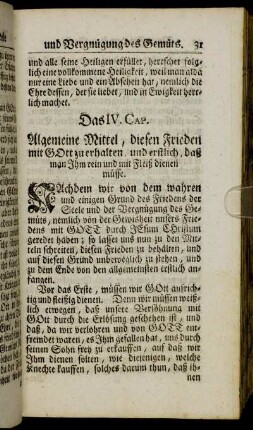 und Vergnügung des Gemüts. 31
und alle seine Heiligen erfüllet, herrschet folg-
lich eine vollkommene Heiligkeit, weil man alda
nur eine Liebe und ein Absehen hat, nemlich die
Ehre dessen, der sie liebet, und in Ewigkeit herr-
lich machet.
Das IV. CAP.
Algemeine Mittel, diesen Frieden
mit GOtt zu erhalten. und erstlich, daß
man Ihm rein und mit Fleiß dienen
müsse.
NAchdem wir von dem wahren
und einigen Grund des Friedens der
Seele und der Vergnügung des Ge-
müts, nemlich von der Gewisheit unsers Frie-
dens mit GOTT durch JEsum Christum
geredet haben; so lasset uns nun zu den Mit-
teln schreiten, diesen Frieden zu behalten, und
auf diesen Grund unbeweglich zu stehen, und
zu dem Ende von den allgemeinsten erstlich an-
fangen.
Vor das Erste, müssen wir GOtt aufrich-
tig und fleißig dienen. Denn wir müssen weiß-
lich erwegen, daß unsere Versöhnung mit
GOtt durch die Erlösung geschehen ist, und
daß, da wir verlohren und von GOTT ent-
fremdet waren, es Ihm gefallen hat, uns durch
seinen Sohn frey zu erkauffen, auf daß wir
Ihm dienen solten, wie diejenigen, welche
Knechte kauffen, solches darum thun, daß ih-
nen